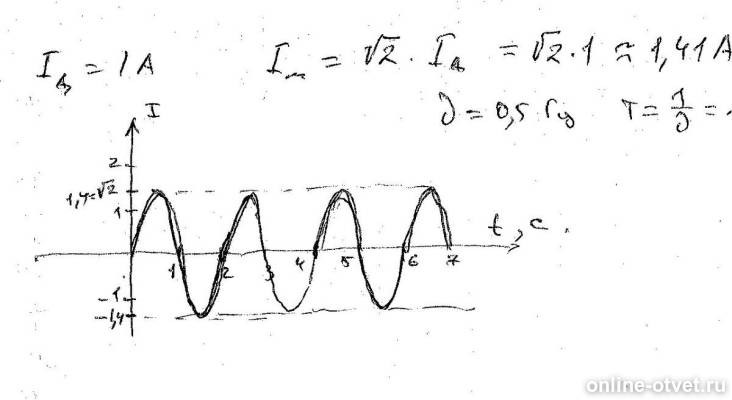 I_д = 1 А
I_m = √2 · I_д = √2 · 1 ≈ 1,41 А
ν = 0,5 Гц T = 1/ν =
I
2
1,4=√2
1
t, с.
1 2 3 4 5 6 7
-1
-1,4
online-otvet.ru